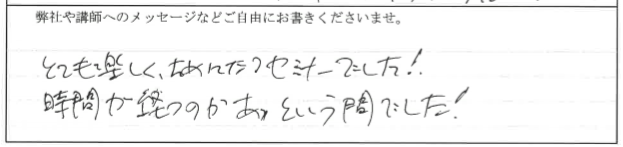 弊社や講師へのメッセージなどご自由にお書きくださいませ。
とても楽しく、ためになるセミナーでした!!
時間が経つのがあっという間でした!